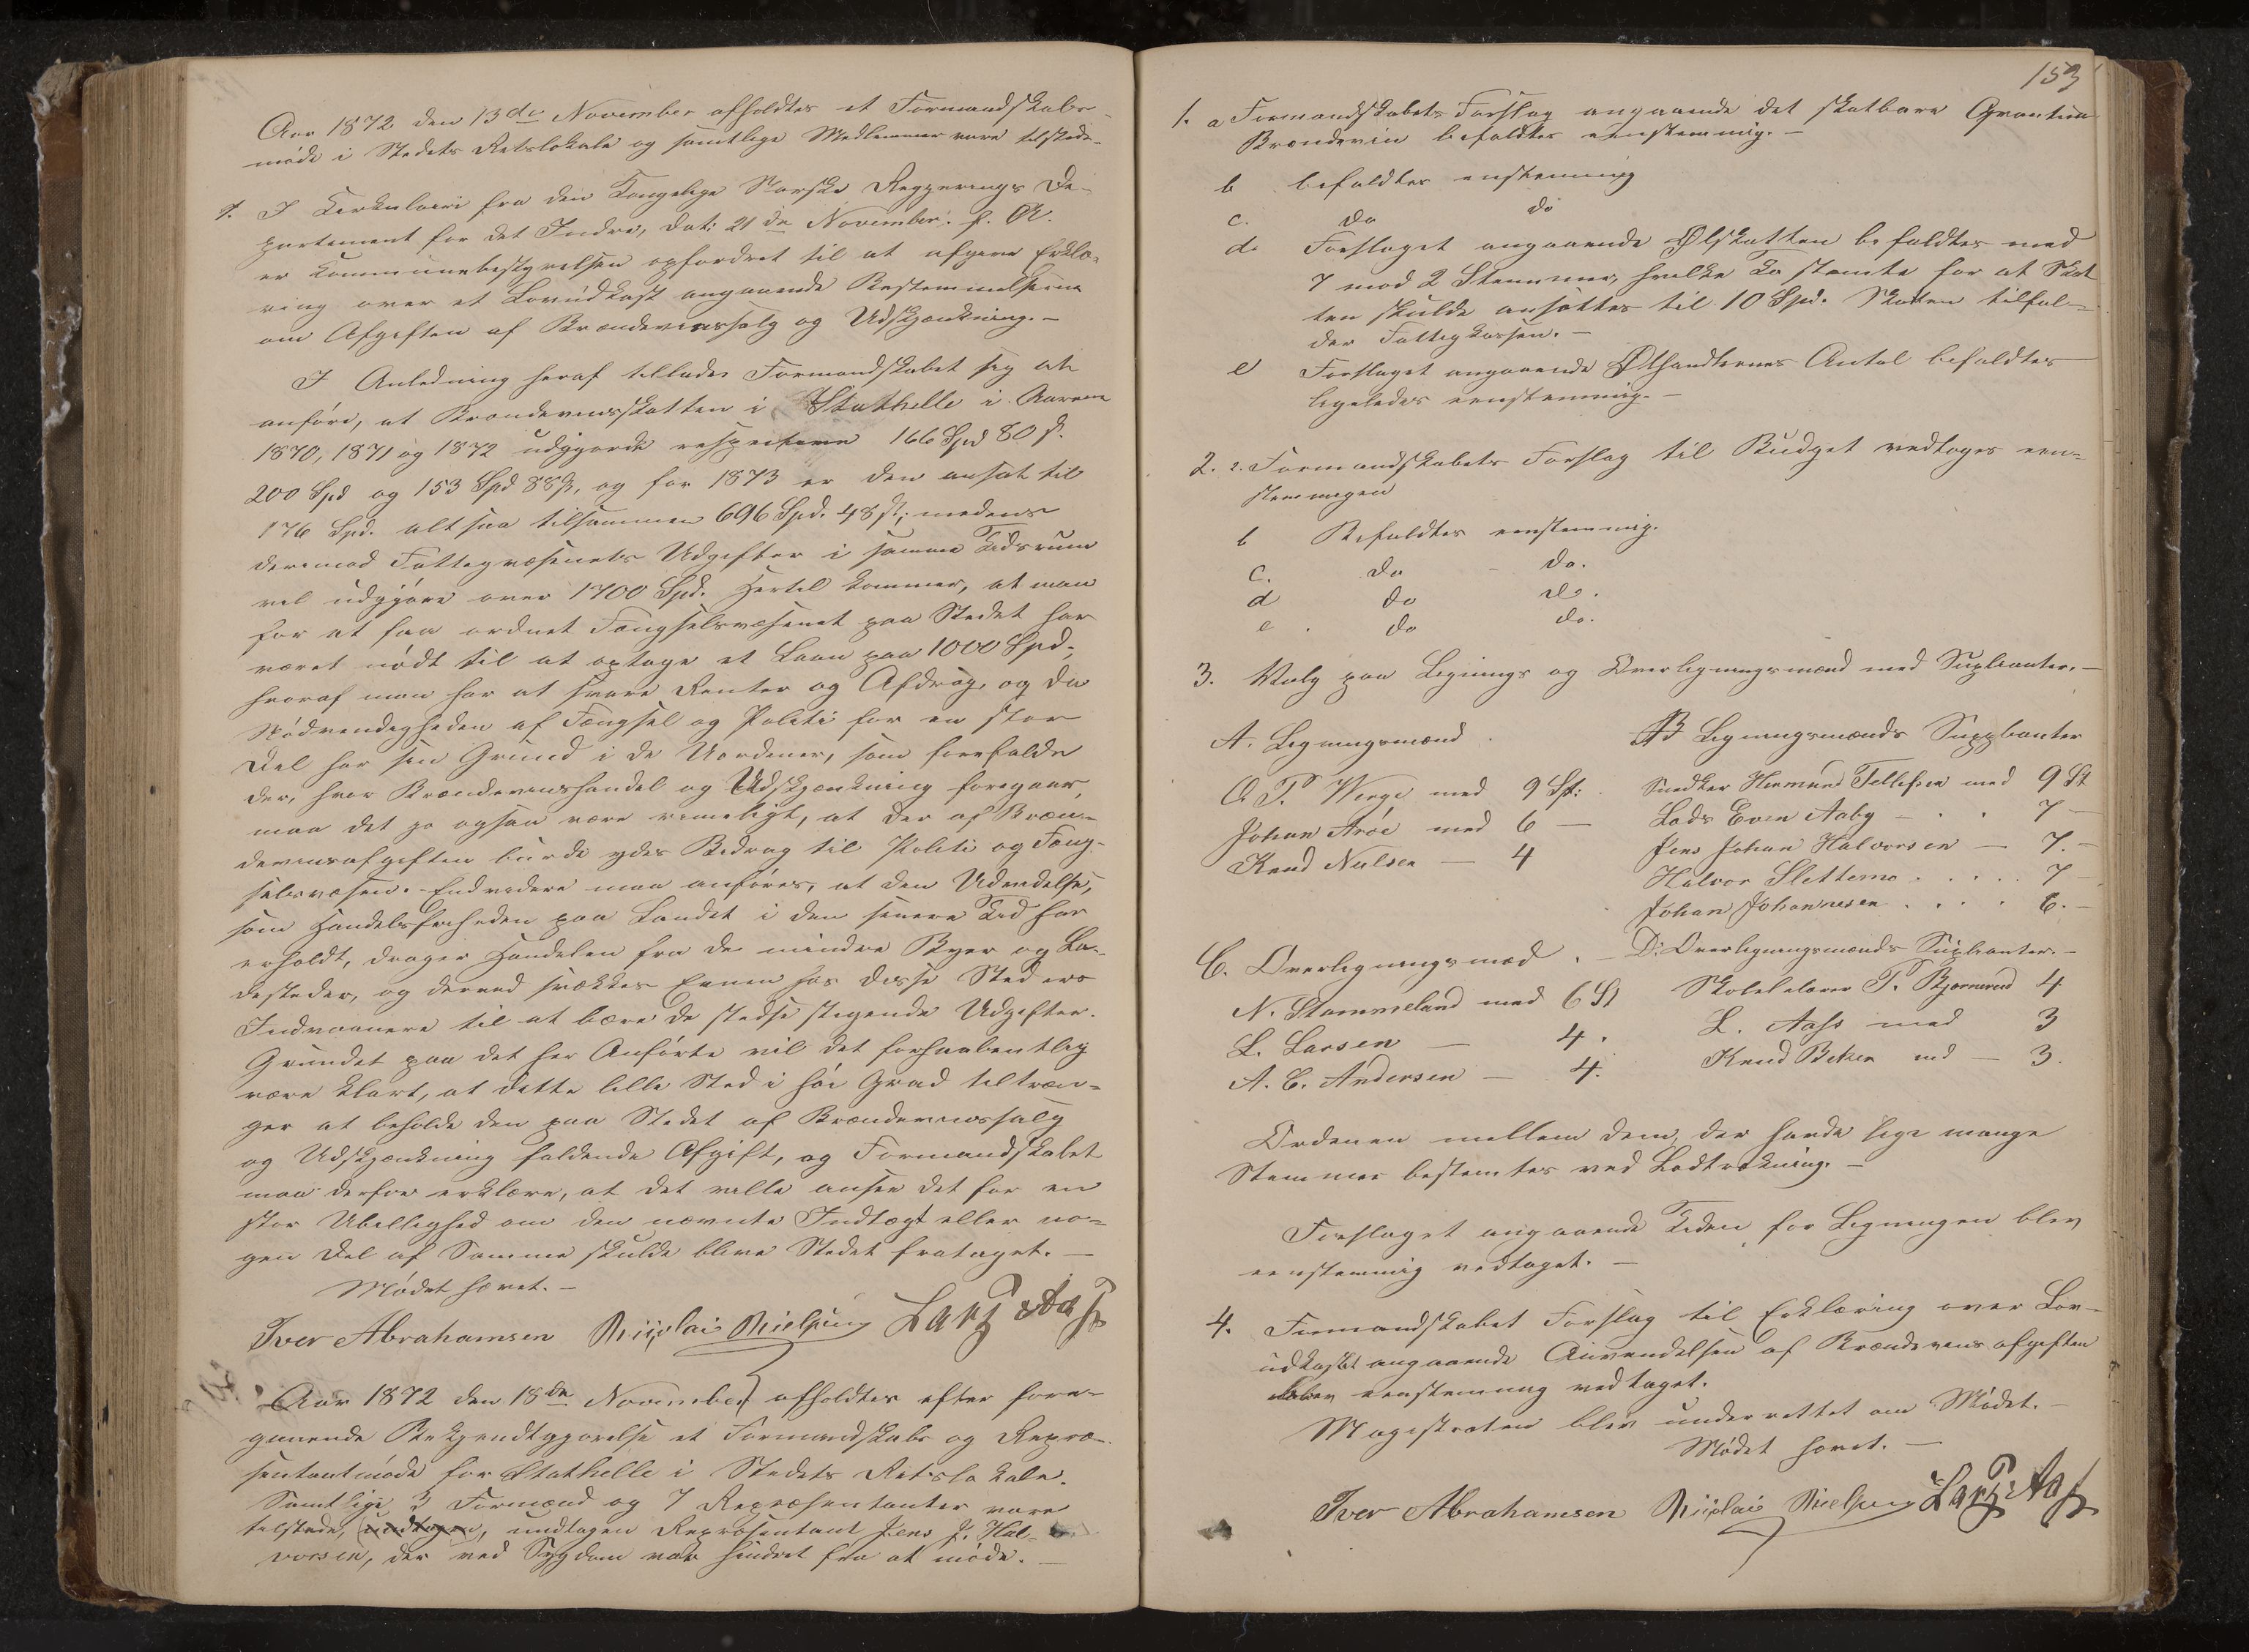 Aar 1872 den 13de November afholdtes et Formandskabs
møde i Stedets Retslokale og samtlige Medlemmer vare tilstede.
1. I Cirkulaire fra den Kongelige Norske Regjerings De-
partement for det Indre, dat: 21de November f. A.
er Kommunebestyrelsen opfordret til at afgive Erklæ-
ring over et Lovudkast angaaende Bestemmelserne
om Afgiften af Brændevinssalg og Udskjænkning. –
I Anledning heraf tillader Formandskabet sig at
anføre, at Brændevinsskatten i Stathelle i Aarene
1870, 1871 og 1872 udgjorde respective 166 Spd 80 s.
200 Spd og 153 Spd 88 s, og for 1873 er den ansat til
176 Spd. altsaa tilsammen 696 Spd. 48 s; medens
derimod Fattigvæsenets Udgifter i samme Tidsrum
vel udgjøre over 1700 Spd. Hertil kommer, at man
for at faa ordnet Fængselsvæsenet paa Stedet har
været nødt til at optage et Laan paa 1000 Spd.,
hvoraf man har at svare Renter og Afdrag, og da
Nødvendigheden af Fængsel og Politi for en stor
Del har sin Grund i de Uordener, som forefalde
der, hvor Brændevinshandel og Udskjænkning foregaar,
maa det jo ogsaa være rimeligt, at der af Bræn-
devinsafgiften burde ydes Bidrag til Politi og Fæng-
selsvæsen. Endvidere maa anføres, at den Udvidelse,
som Handelsfriheden paa Landet i den senere Tid har
erholdt, drager Handelen fra de mindre Byer og La-
desteder, og derved svækkes Evnen hos disse Steders
Indvaanere til at bære de stedse stigende Udgifter.
Grundet paa det her Anførte vil det forhaabentlig
være klart, at dette lille Sted i høi Grad tiltræn-
ger at beholde den paa Stedet af Brændevinssalg
og Udskjænkning faldende Afgift, og Formandskabet
maa derfor erklære, at det ville ansee det for en
stor Ubillighed om den nævnte Indtægt eller no-
gen Del af Samme skulde blive Stedet frataget. –
Mødet hævet. –
Iver Abrahamsen Nicolai Nielsen Lars Aas
Aar 1872 den 18de November afholdtes efter fore-
gaaende Bekjendtgjørelse et Formandskabs og Repræ-
sentantmøde for Stathelle i Stedets Retslokale.
Samtlige 3 Formænd og 7 Repræsentanter vare
tilstede, undtagen, undtagen Repræsentant Jens J. Hal-
vorsen, der ved Sygdom var hindret fra at møde. –
153
1. a Formandskabets Forslag angaaende det skatbare Qvantum
Brændevin befaldtes eenstemmig. –
b befaldtes enstemmig
c. do do
d. Forslaget angaaende Ølskatten befaldtes med
7 mod 2 Stemmer, hvilke to stemte for at Skat
ten skulde ansættes til 10 Spd. Skatten tilfal-
der Fattigkassen. –
e Forslaget angaaende Ølhandlernes Antal befaldtes
ligeledes eenstemmig. –
2. a. Formandskabets Forslag til Budget vedtoges een-
stemmigen
b Befaldtes eenstemmig.
c. do - do.
d do do.
e. do do.
3. Valg paa Lignings og Overligningsmænd med Suplianter. –
A. Ligningsmænd. B Ligningsmænds Supplianter
O. P. Werge med 9 St: Snedker Hermund Tellefsen med 9 St
Johan Arøe med 6 – Lods Even Aaby – . . 7 –
Knud Nielsen – 4 Jens Johan Halvorsen – 7. –
Halvor Slettemo . . . . . 7 –
Johan Johannesen . . . . 6. –
C. Overligningsmæd. – D. Overligningsmænds Suplianter. –
N. Stammeland med 6 St Skolelærer P. Bjørnerud 4
L. Larsen – 4. L. Aass med 3
A. C. Andersen – 4. Knud md – 3.
Ordenen mellem dem, der havde lige mange
Stemmer bestemtes ved Lodtrækning. –
Forslaget angaaende Tiden for Ligningen blev
eenstemmig vedtaget. –
4. Formandskabet Forslag til Erklæring over Lov-
udkastet angaaende Anvendelsen af Brændevinsafgiften
blev eenstemmig vedtaget.
Magistraten blev underrettet om Mødet. –
Mødet hævet. –
Iver Abrahamsen Nicolai Nielsen Lars Aas